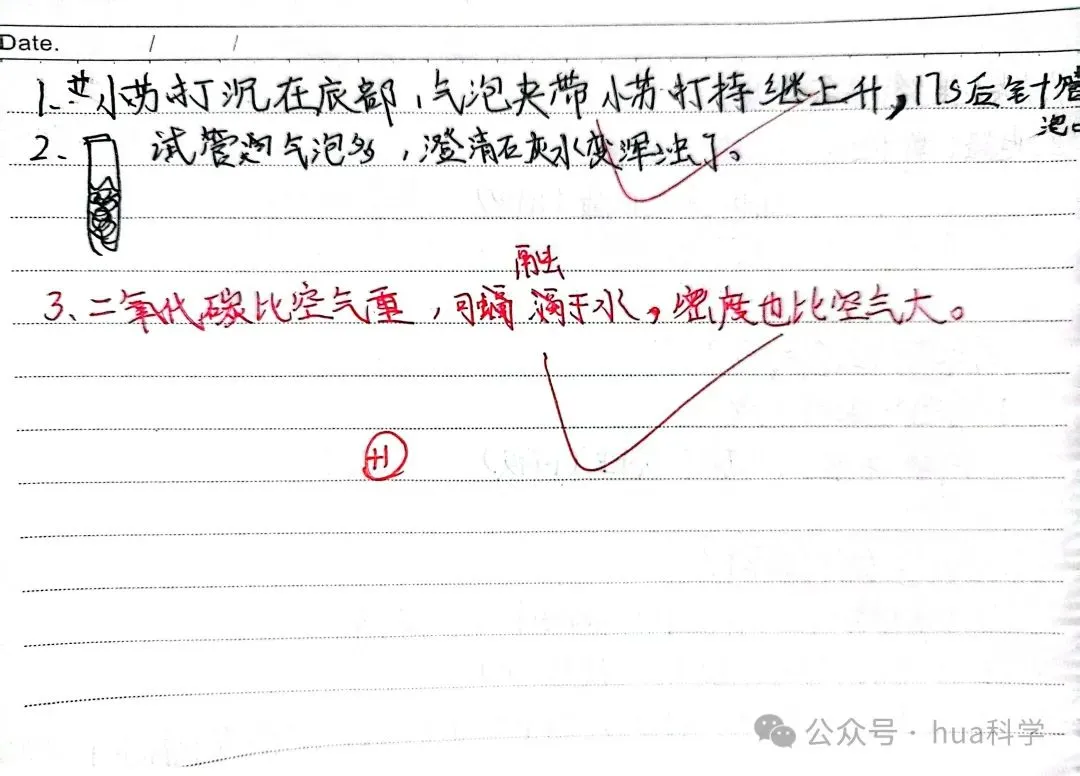 Date. / /
1. 小苏打沉在底部，气泡夹带小苏打持继上升，17s后针管
泡
2、试管气泡多，澄清石灰水变浑浊了。
融
3、二氧代碳比空气重，可溶于水，密度也比空气大。
+1
公众号·hua科学